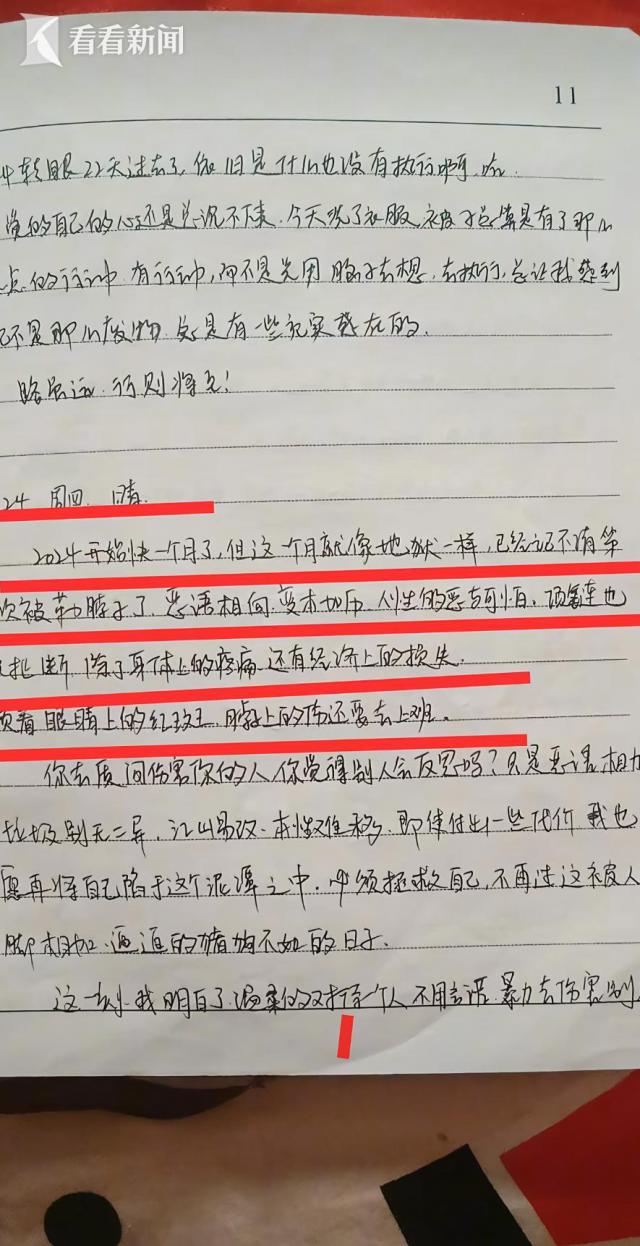 看看新闻
11
转眼22天过去了,依旧是什么也没有执行啊,唉
觉的自己的心还是总沉不下来.今天洗了衣服,被子总算是有了那么
点的行动.有行动,而不是先用脑子去想,去执行,总让我感到
不是那么废物,总是有一些充实感在的.
路虽远,行则将至!
24 周四 晴.
2024开始快一个月了,但这一个月就像地狱一样,已经记不清第
次被勒脖子了 恶语相向.变本加厉 人性的恶与可怕,项链也
扯断 除了身体上的疼痛 还有经济上的损失.
顶着眼睛上的红斑 脖子上的伤还要去上班.
你去质问伤害你的人 你觉得别人会反思吗?只是恶语相
垃圾别无二异,江山易改.本性难移,即使付出一些代价 我也
愿再将自己陷于这个泥潭之中.必须拯救自己,不再过这被人
脚相加,逼逼的猪狗不如的日子.
这一刻我明白了温柔的对待一个人 不用言语.暴力去伤害别